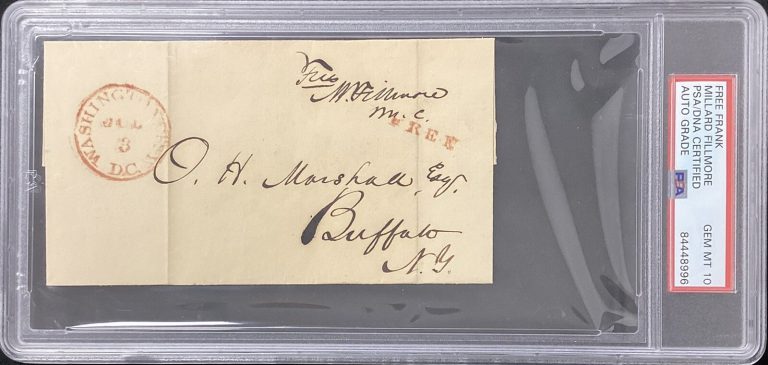 Free
M. Fillmore
M. C.
FREE
WASHINGTON CITY
JUL
3
D.C.
O. H. Marshall, Esq.
Buffalo
N.Y.
FREE FRANK
MILLARD FILLMORE
PSA/DNA CERTIFIED
AUTO GRADE
GEM MT 10
PSA
84448996